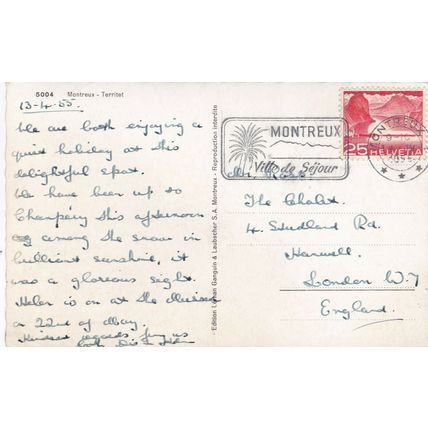 5004 Montreux - Territet
13-4-55.
We are both enjoying a
quiet holiday at this
delightful spot.
We have been up to
Champéry this afternoon
among the snow in
brilliant sunshine, it
was a glorious sight.
Helen is on at the
on 22nd of May.
Kindest regards from us
both
Edition Ganguin & Laubscher S.A. Montreux - Reproduction interdite
MONTREUX
Ville de Séjour
MONTREUX
1955
25 HELVETIA
Mr.
The Chalet.
4. Studland Rd.
Hanwell.
London W.7
England.